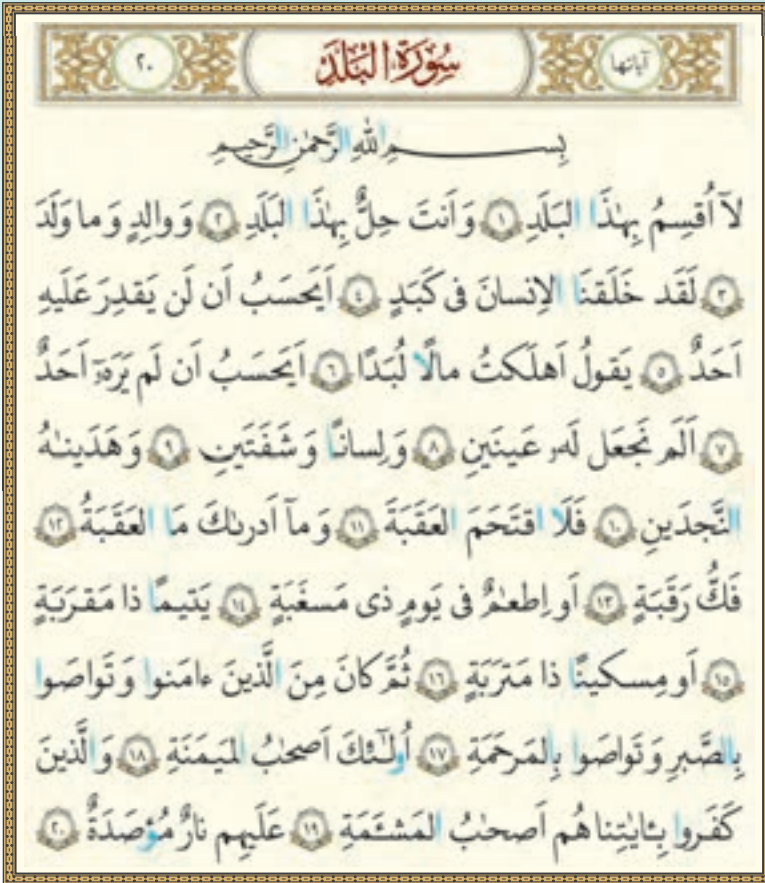 آیاتها سُورَةُ البَلَد ۲۰
بِسمِ اللهِ الرَّحمٰنِ الرَّحیمِ
لآ اُقسِمُ بِهٰذَا البَلَدِ ﴿۱﴾ وَ اَنتَ حِلٌّ بِهٰذَا البَلَدِ ﴿۲﴾ وَ والِدٍ وَ ما وَلَدَ
﴿۳﴾ لَقَد خَلَقنَا الاِنسانَ فی کَبَدٍ ﴿۴﴾ اَیَحسَبُ اَن لَن یَقدِرَ عَلَیهِ
اَحَدٌ ﴿۵﴾ یَقولُ اَهلَکتُ مالًا لُبَدًا ﴿۶﴾ اَیَحسَبُ اَن لَم یَرَهٓ اَحَدٌ
﴿۷﴾ اَلَم نَجعَل لَهُ عَینَینِ ﴿۸﴾ وَ لِسانًا وَ شَفَتَینِ ﴿۹﴾ وَ هَدَینٰهُ
النَّجدَینِ ﴿۱۰﴾ فَلَا اقتَحَمَ العَقَبَةَ ﴿۱۱﴾ وَ مآ اَدرىٰكَ مَا العَقَبَةُ ﴿۱۲﴾
فَكُّ رَقَبَةٍ ﴿۱۳﴾ اَو اِطعٰمٌ فی یَومٍ ذی مَسغَبَةٍ ﴿۱۴﴾ یَتیمًا ذا مَقرَبَةٍ
﴿۱۵﴾ اَو مِسکینًا ذا مَترَبَةٍ ﴿۱۶﴾ ثُمَّ کانَ مِنَ الَّذینَ ءامَنوا وَ تَواصَوا
بِالصَّبرِ وَ تَواصَوا بِالمَرحَمَةِ ﴿۱۷﴾ اُولٰٓئِكَ اَصحٰبُ المَیمَنَةِ ﴿۱۸﴾ وَ الَّذینَ
کَفَروا بِـٔایٰتِنا هُم اَصحٰبُ المَشـَٔمَةِ ﴿۱۹﴾ عَلَیهِم نارٌ مُؤصَدَةٌ ﴿۲۰﴾